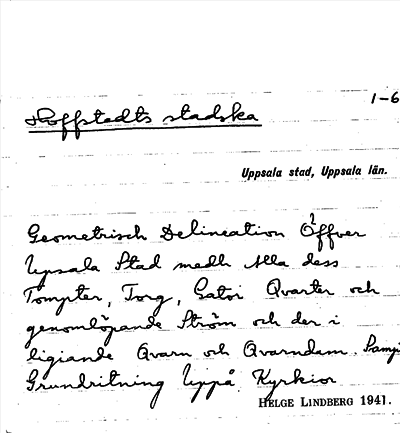 Hoffstedts stadska
1-6
Uppsala stad, Uppsala län.
Geometrisch Delineation Öffver
Upsala Stad medh Alla dess
Tompter, Torg, Gator Qvarter och
genomlöpande Ström och der i
ligiande Qvarn och Qvarndam. Sampt
Grundritning Uppå Kyrkior
HELGE LINDBERG 1941.